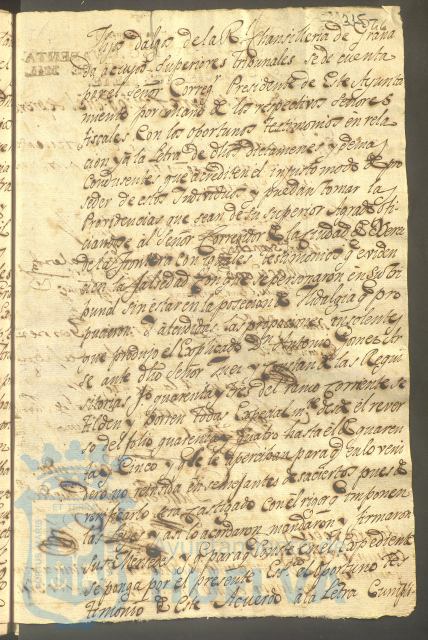 Hijos dalgo de la Rl. Chansilleria de Grana
da, a cuyos Superiores tribunales se de cuenta
por el Señor Corregr. Presidente de Este Ayunta
miento por mano de los respectivos Señores
fiscales Con los oportunos testimonios en rela
cion y a la Letra de dhos. dictamenes y demas
Condusente, que acredite el injusto modo de pro
seder de estos Individuos y puedan tomar las
Providencias que sean de su Superior agrado
al Señor Corregidor de la ciudad de Xerez
de la frontera con iguales testimonios q. eviden
cien la falsedad con que se personaron en su
sin estar en la posecion de Hidalgia q. pro
pucieron: atendidas las propociciones insolentes
que produjo el Explicado Dn. Antonio Gomez
ante dho Señor Juez y Constan de las Requi
sitorias fo. quarenta y tres del ramo Corriente se
tilden y borren todas Especialmte. desde el rever
so del folio quarenta y quatro hasta el quaren
ta y Cinco y que se le aperciban para q. en lo veni
dero no reincida en semejantes desaciertos pues de
verificarlo sera Castigado con el rigor q. imponen
las Leyes y asi lo acordaron mandaron y firmaron
Sus Mersedes y q. para q. conste en el Expediente
se ponga por el presente Esno. el Oportuno tes
timonio de Este Acuerdo a la Letra